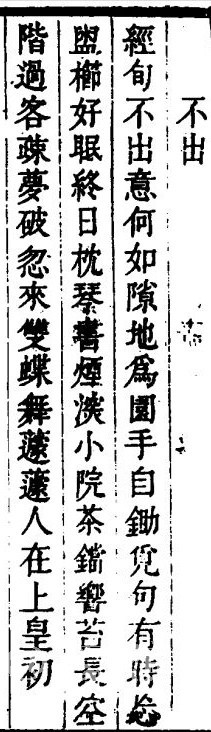 不出
經旬不出意何如隙地爲園手自鋤覓句有時忘
盥櫛好眠終日枕琹書煙淡小院茶鐺響苔長空
階過客疎夢破忽來雙蝶舞蘧蘧人在上皇初